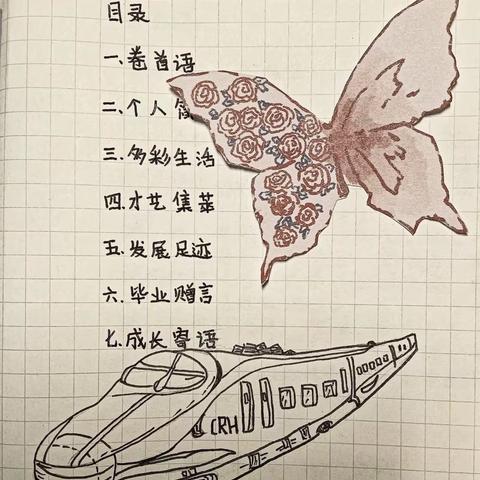 目录
一.卷首语
二.个人简
三.多彩生活
四.才艺集萃
五.发展足迹
六.毕业赠言
七.成长寄语
CRH